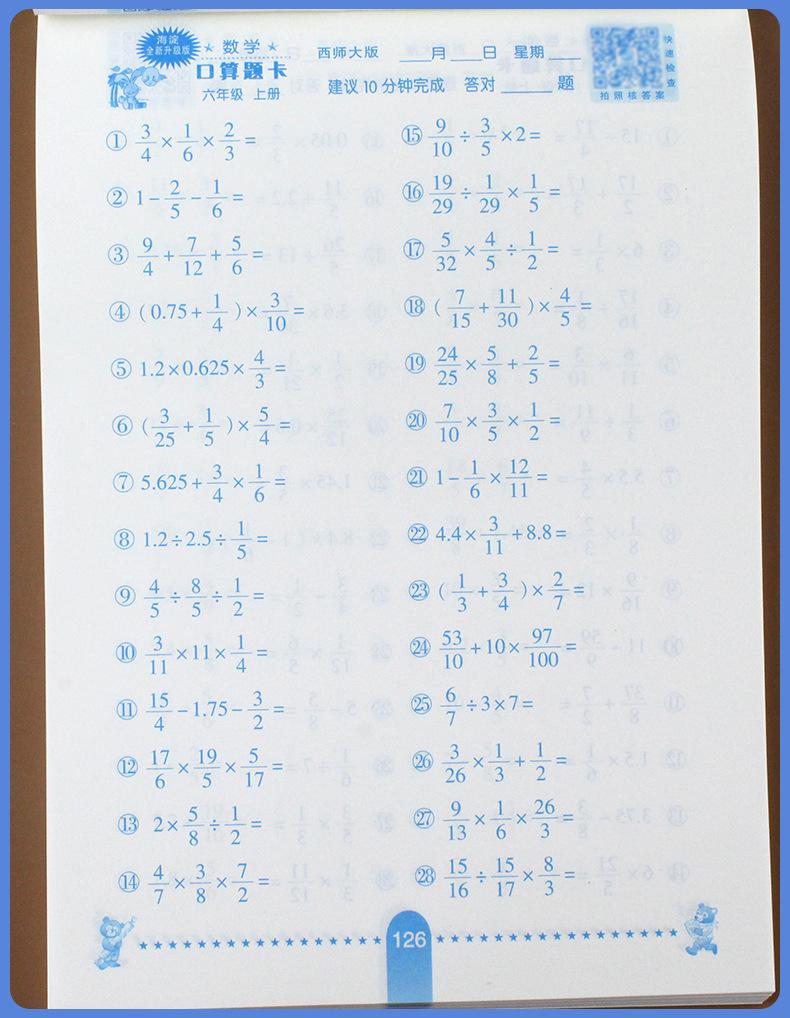 海淀
全新升级版
★ 数学 ★
口算题卡
六年级 上册
西师大版 ____月____日 星期
建议10分钟完成 答对______题
快速检查
拍照核答案
① 3/4×1/6×2/3=
② 1-2/5-1/6=
③ 9/4+7/12+5/6=
④ (0.75+1/4)×3/10=
⑤ 1.2×0.625×4/3=
⑥ (3/25+1/5)×5/4=
⑦ 5.625+3/4×1/6=
⑧ 1.2÷2.5÷1/5=
⑨ 4/5÷8/5÷1/2=
⑩ 3/11×11×1/4=
⑪ 15/4-1.75-3/2=
⑫ 17/6×19/5×5/17=
⑬ 2×5/8÷1/2=
⑭ 4/7×3/8×7/2=
⑮ 9/10÷3/5×2=
⑯ 19/29÷1/29×1/5=
⑰ 5/32×4/5÷1/2=
⑱ (7/15+11/30)×4/5=
⑲ 24/25×5/8+2/5=
⑳ 7/10×3/5×1/2=
㉑ 1-1/6×12/11=
㉒ 4.4×3/11+8.8=
㉓ (1/3+3/4)×2/7=
㉔ 53/10+10×97/100=
㉕ 6/7÷3×7=
㉖ 3/26×1/3+1/2=
㉗ 9/13×1/6×26/3=
㉘ 15/16÷15/17×8/3=
126